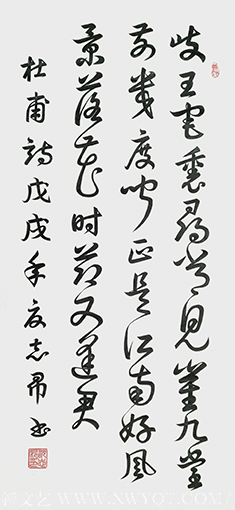 岐王宅里寻常见崔九堂
前几度闻正是江南好风
景落花时节又逢君
杜甫诗戊戌年夏志昂书
WWW.XWYQT.COM